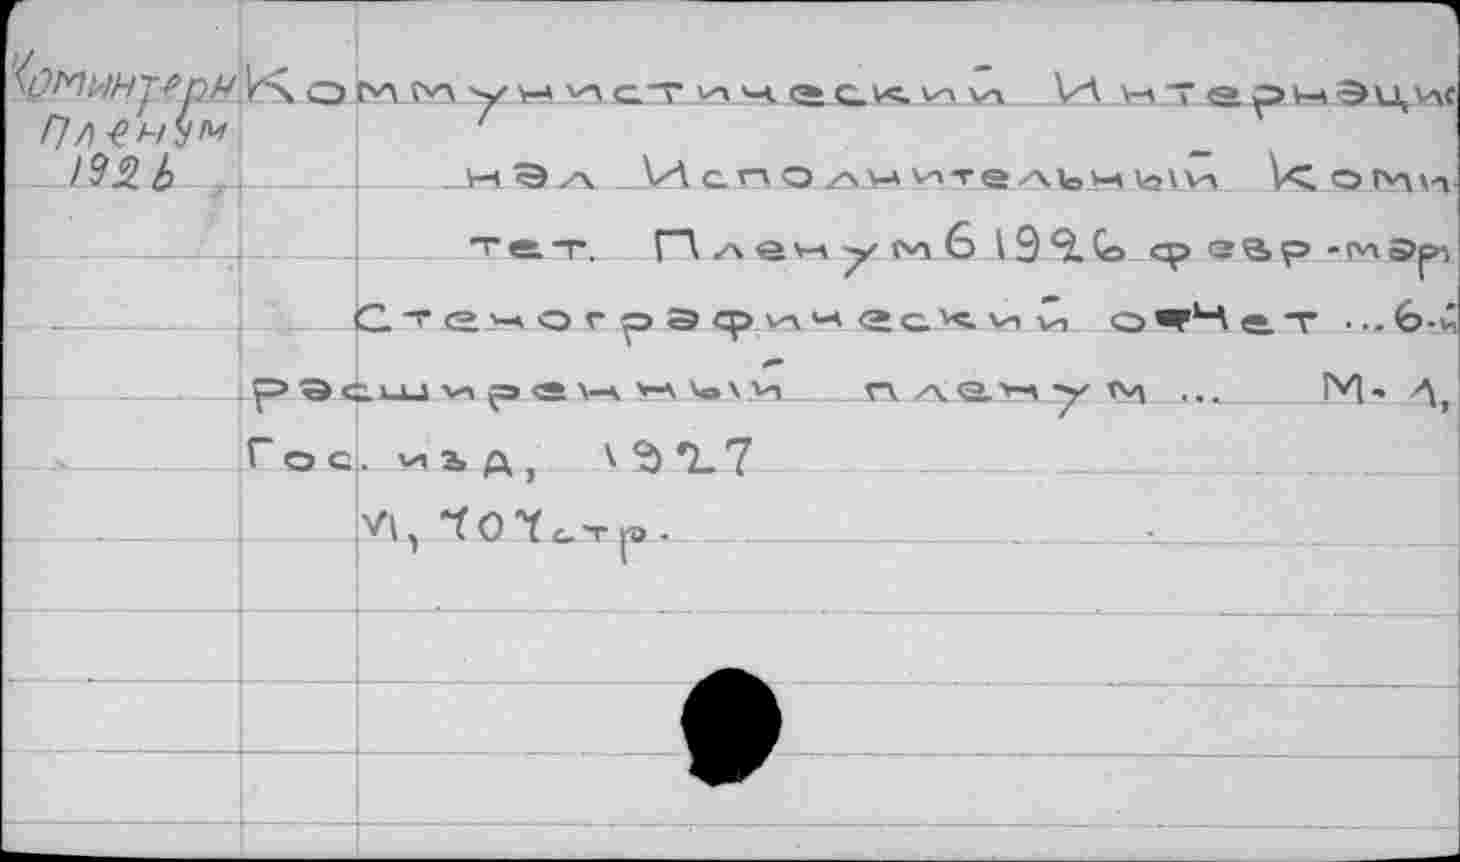 Коминтерн
Пленум
1926
Коммунистический Интернэцио
нэл Исполнительный Коми
тет. Пленум 6 1926 февр-мэрт
Стеногрэфический отчет ...6-й
рэсширенный пленум ... М-Л,
Гос. изд, 1927
VI, 707стр.